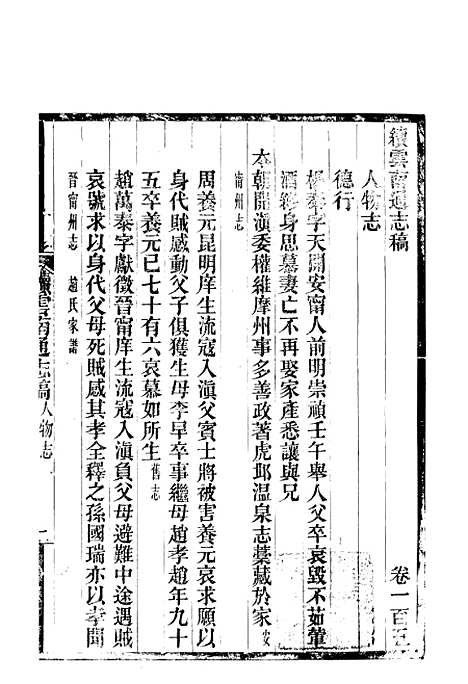 續雲南通志稿 卷一百五
人物志
德行
楊泰字天開安甯人前明崇禎壬午舉人父卒哀毀不茹葷
酒終身思慕妻亡不再娶家產悉讓與兄
本朝開滇委權維摩州事多善政著虎邱温泉志藁藏於家
甯州志
周養元昆明庠生流寇入滇父賓士將被害養元哀求願以
身代賊感動父子俱獲生母李早卒事繼母趙孝趙年九十
五卒養元已七十有六哀慕如所生舊志
趙萬泰字獻徵晉甯庠生流寇入滇負父母避難中途遇賊
哀號求以身代父母死賊感其孝全釋之孫國瑞亦以孝聞
晉甯州志 趙氏家譜
續雲南通志稿人物志 一